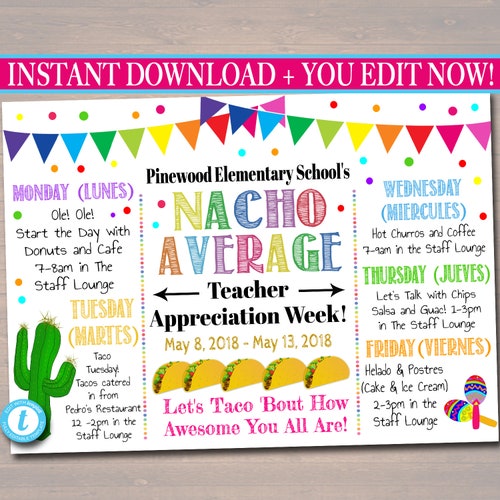 INSTANT DOWNLOAD + YOU EDIT NOW!
Pinewood Elementary School's
NACHO
AVERAGE
Teacher
Appreciation Week!
May 8, 2018 - May 13, 2018
Let's Taco 'Bout How
Awesome You All Are!
MONDAY (LUNES)
Ole! Ole!
Start the Day with
Donuts and Cafe
7-8am in The
Staff Lounge
TUESDAY
(MARTES)
Taco
Tuesday!
Tacos catered
in from
Pedro's Restaurant
12 -2pm in the
Staff Lounge
WEDNESDAY
(MIERCULES)
Hot Churros and Coffee
7-9am in the Staff Lounge
THURSDAY (JUEVES)
Let's Talk with Chips
Salsa and Guac! 1-3pm
in The Staff Lounge
FRIDAY (VIERNES)
Helado & Postres
(Cake & Ice Cream)
2-3pm in the
Staff Lounge
t